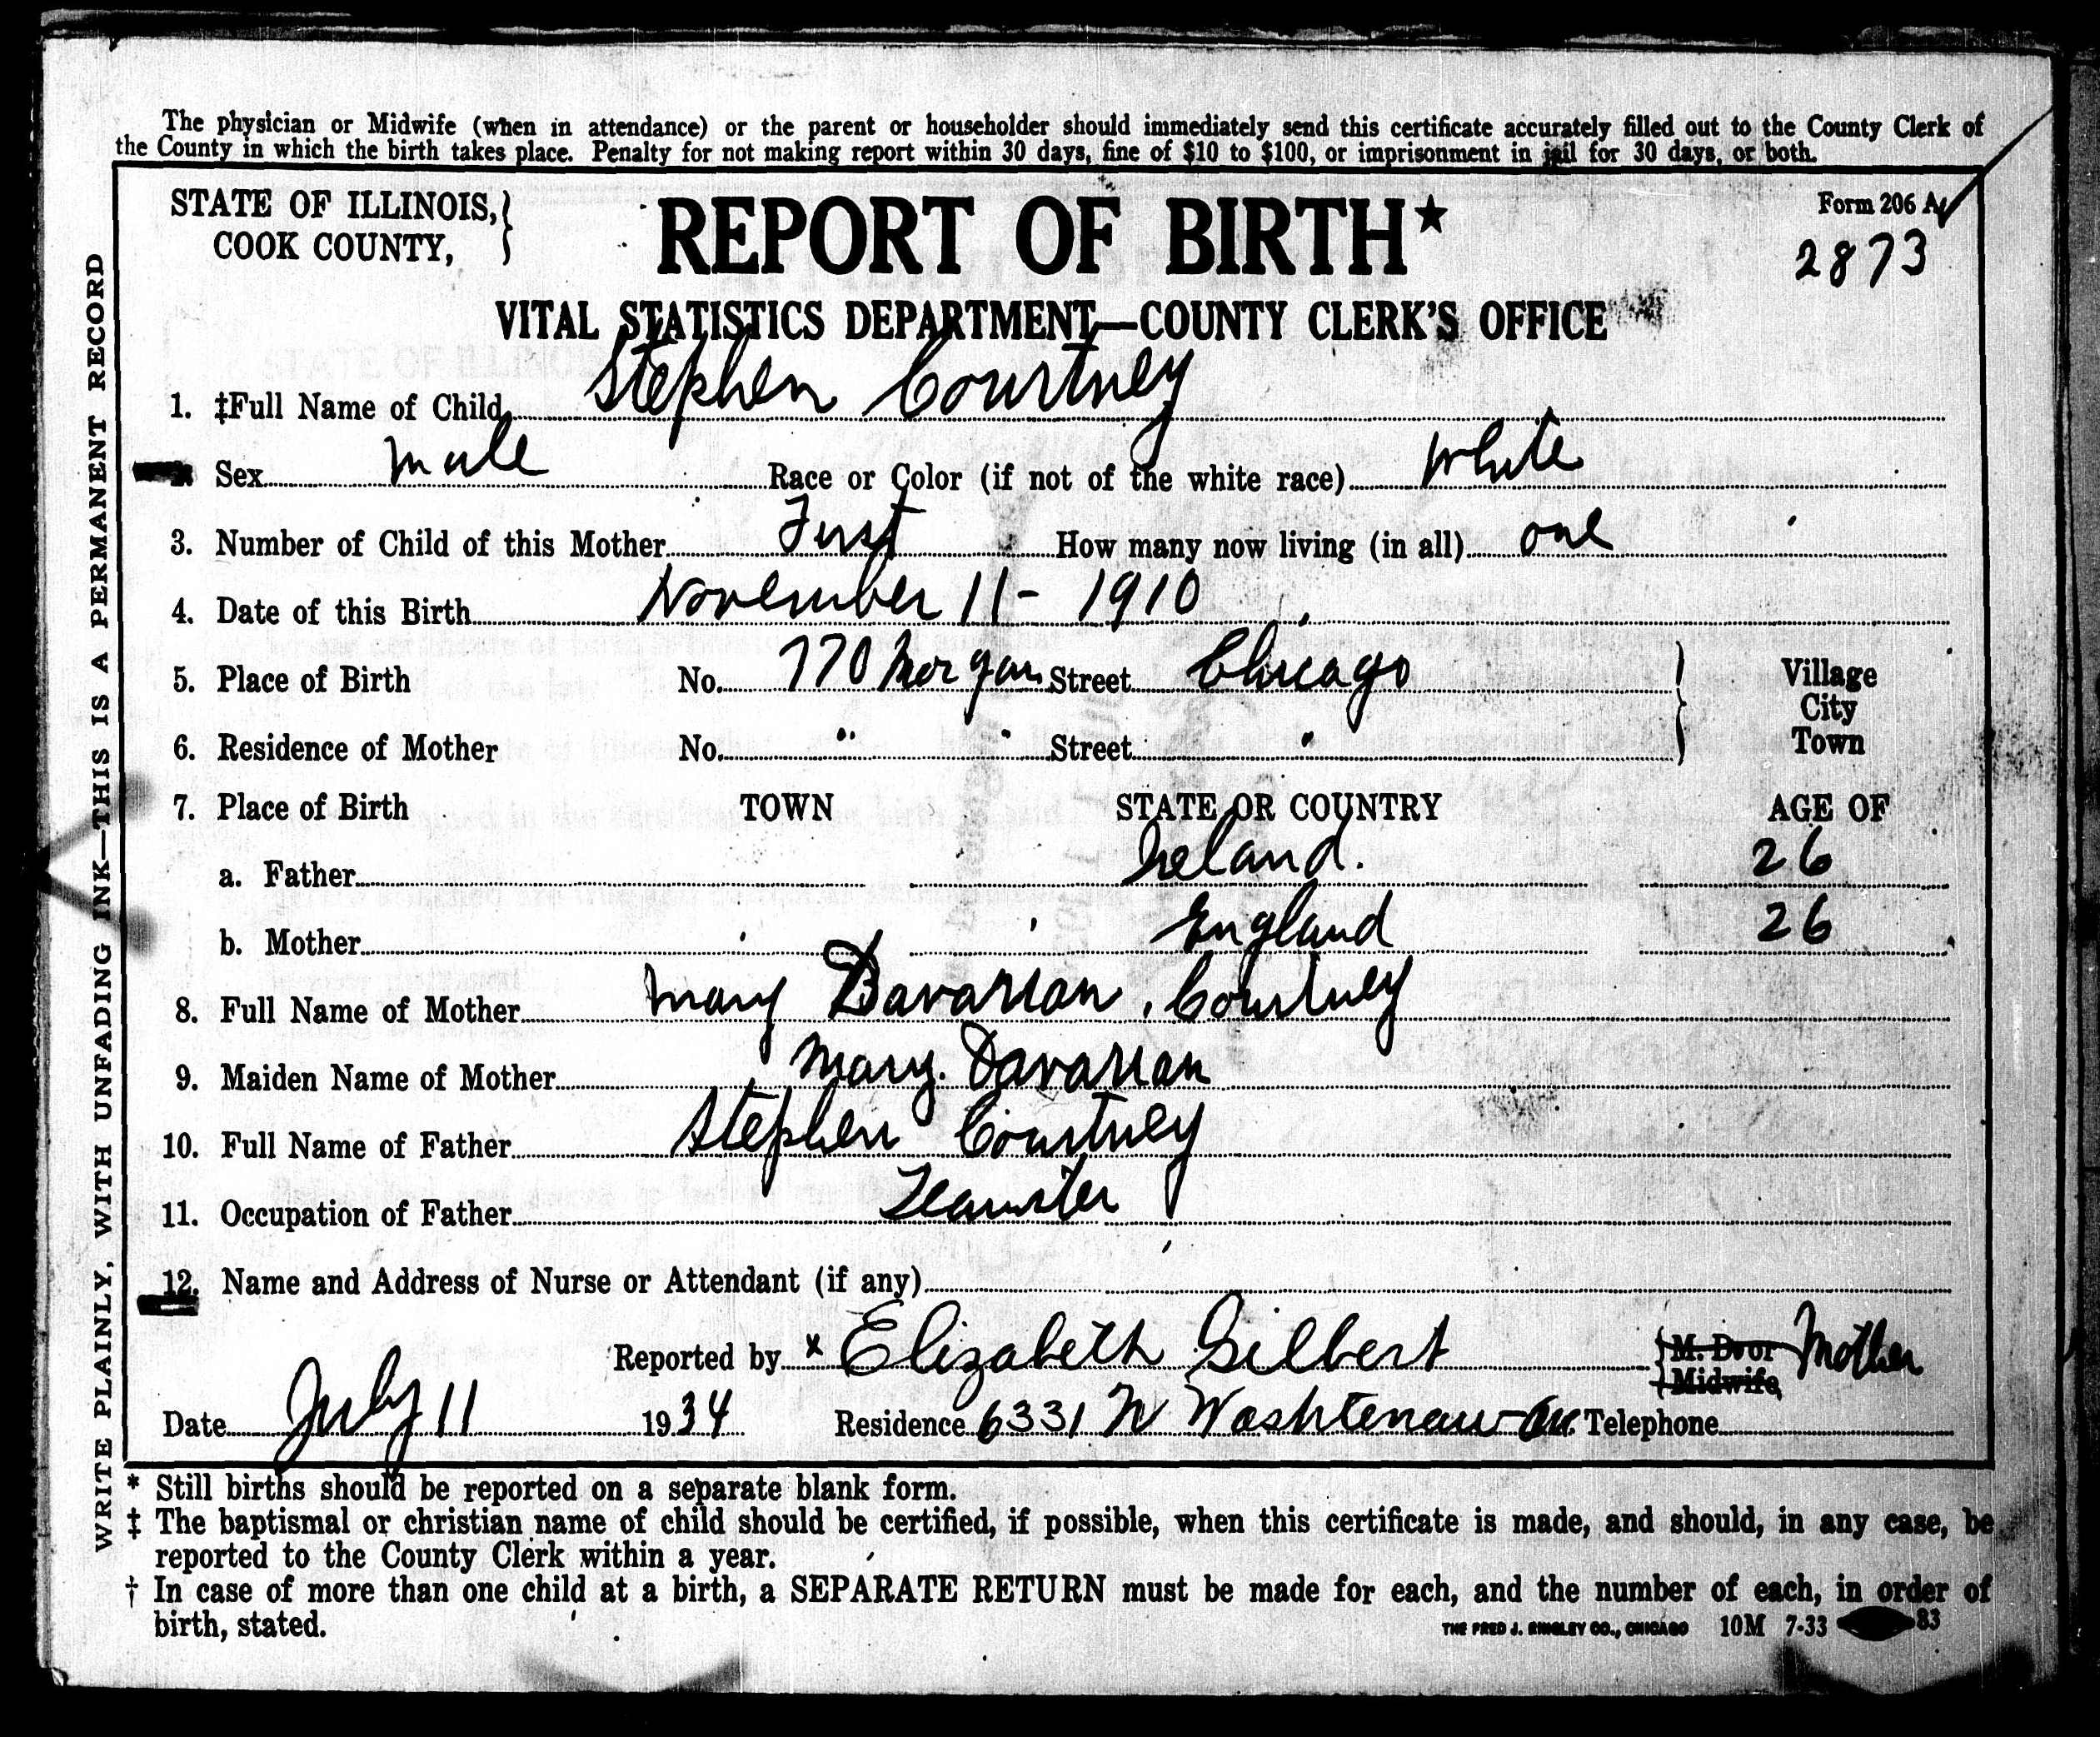 The physician or Midwife (when in attendance) or the parent or householder should immediately send this certificate accurately filled out to the County Clerk of
the County in which the birth takes place. Penalty for not making report within 30 days, fine of $10 to $100, or imprisonment in jail for 30 days, or both.
STATE OF ILLINOIS,
COOK COUNTY,
REPORT OF BIRTH*
Form 206 A
2873
VITAL STATISTICS DEPARTMENT—COUNTY CLERK'S OFFICE
1. ‡Full Name of Child Stephen Courtney
Sex Male Race or Color (if not of the white race) White
3. Number of Child of this Mother First How many now living (in all) one
4. Date of this Birth November 11 - 1910
5. Place of Birth No. 770 Morgan Street Chicago Village
City
6. Residence of Mother No. " " Street " Town
7. Place of Birth TOWN STATE OR COUNTRY AGE OF
a. Father Ireland. 26
b. Mother England 26
8. Full Name of Mother Mary Davarian Courtney
9. Maiden Name of Mother Mary. Davarian
10. Full Name of Father Stephen Courtney
11. Occupation of Father Teamster
12. Name and Address of Nurse or Attendant (if any)
Reported by x Elizabeth Gilbert M. D. or Mother
Midwife
Date July 11 1934 Residence 6331 N Washtenaw Ave. Telephone
* Still births should be reported on a separate blank form.
‡ The baptismal or christian name of child should be certified, if possible, when this certificate is made, and should, in any case, be
reported to the County Clerk within a year.
† In case of more than one child at a birth, a SEPARATE RETURN must be made for each, and the number of each, in order of
birth, stated.
THE FRED J. RINGLEY CO., CHICAGO 10M 7-33 83
WRITE PLAINLY, WITH UNFADING INK—THIS IS A PERMANENT RECORD